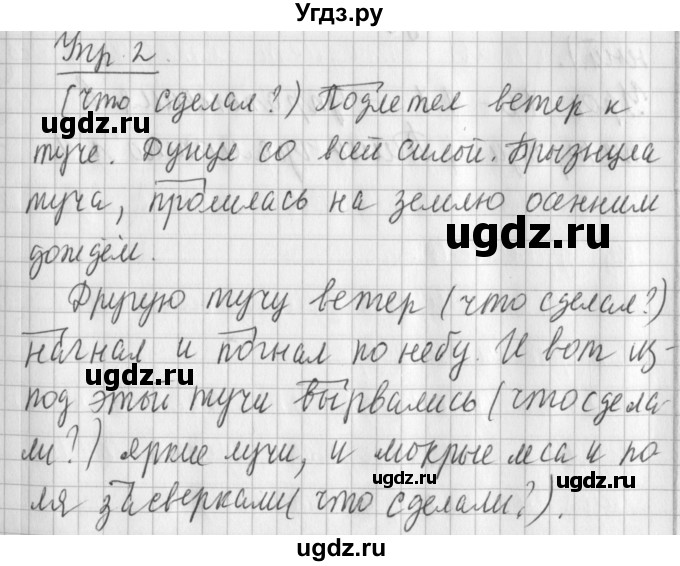 УгдЗ.ру
Упр 2.
(что сделал?) Подлетел ветер к
туче. Дунул со всей силой. Брызнула
туча, пролилась на землю осенним
дождём.
Другую тучу ветер (что сделал?)
нагнал и погнал по небу. И вот из-
под этой тучи вырвались (что сдела-
ли?) яркие лучи, и мокрые леса и по-
ля засверкали (что сделали?).
ugdz.ru
ugdz.ru
ugdz.ru
ugdz.ru
ugdz.ru
ugdz.ru
ugdz.ru